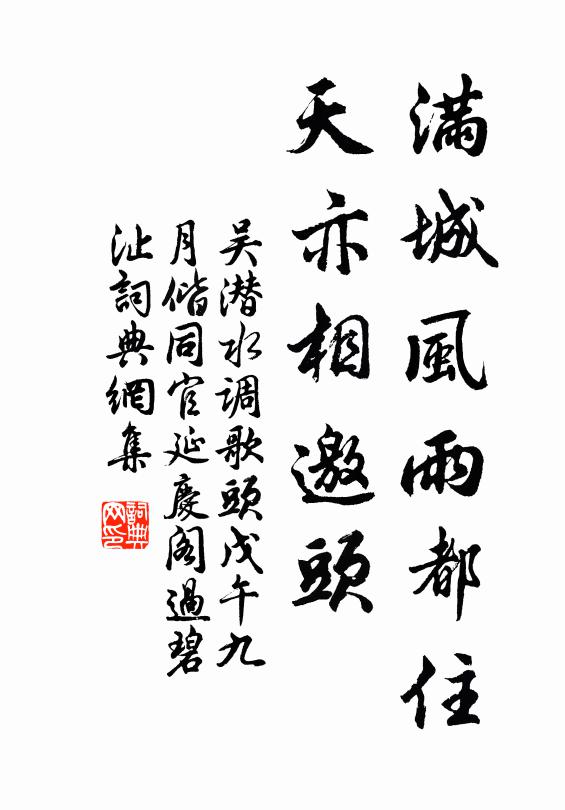 滿城風雨都住
天亦相邀頭
吴潜水调歌頭戊午九
月偕同官延慶阁過碧
沚詞典網集
詞典
网印